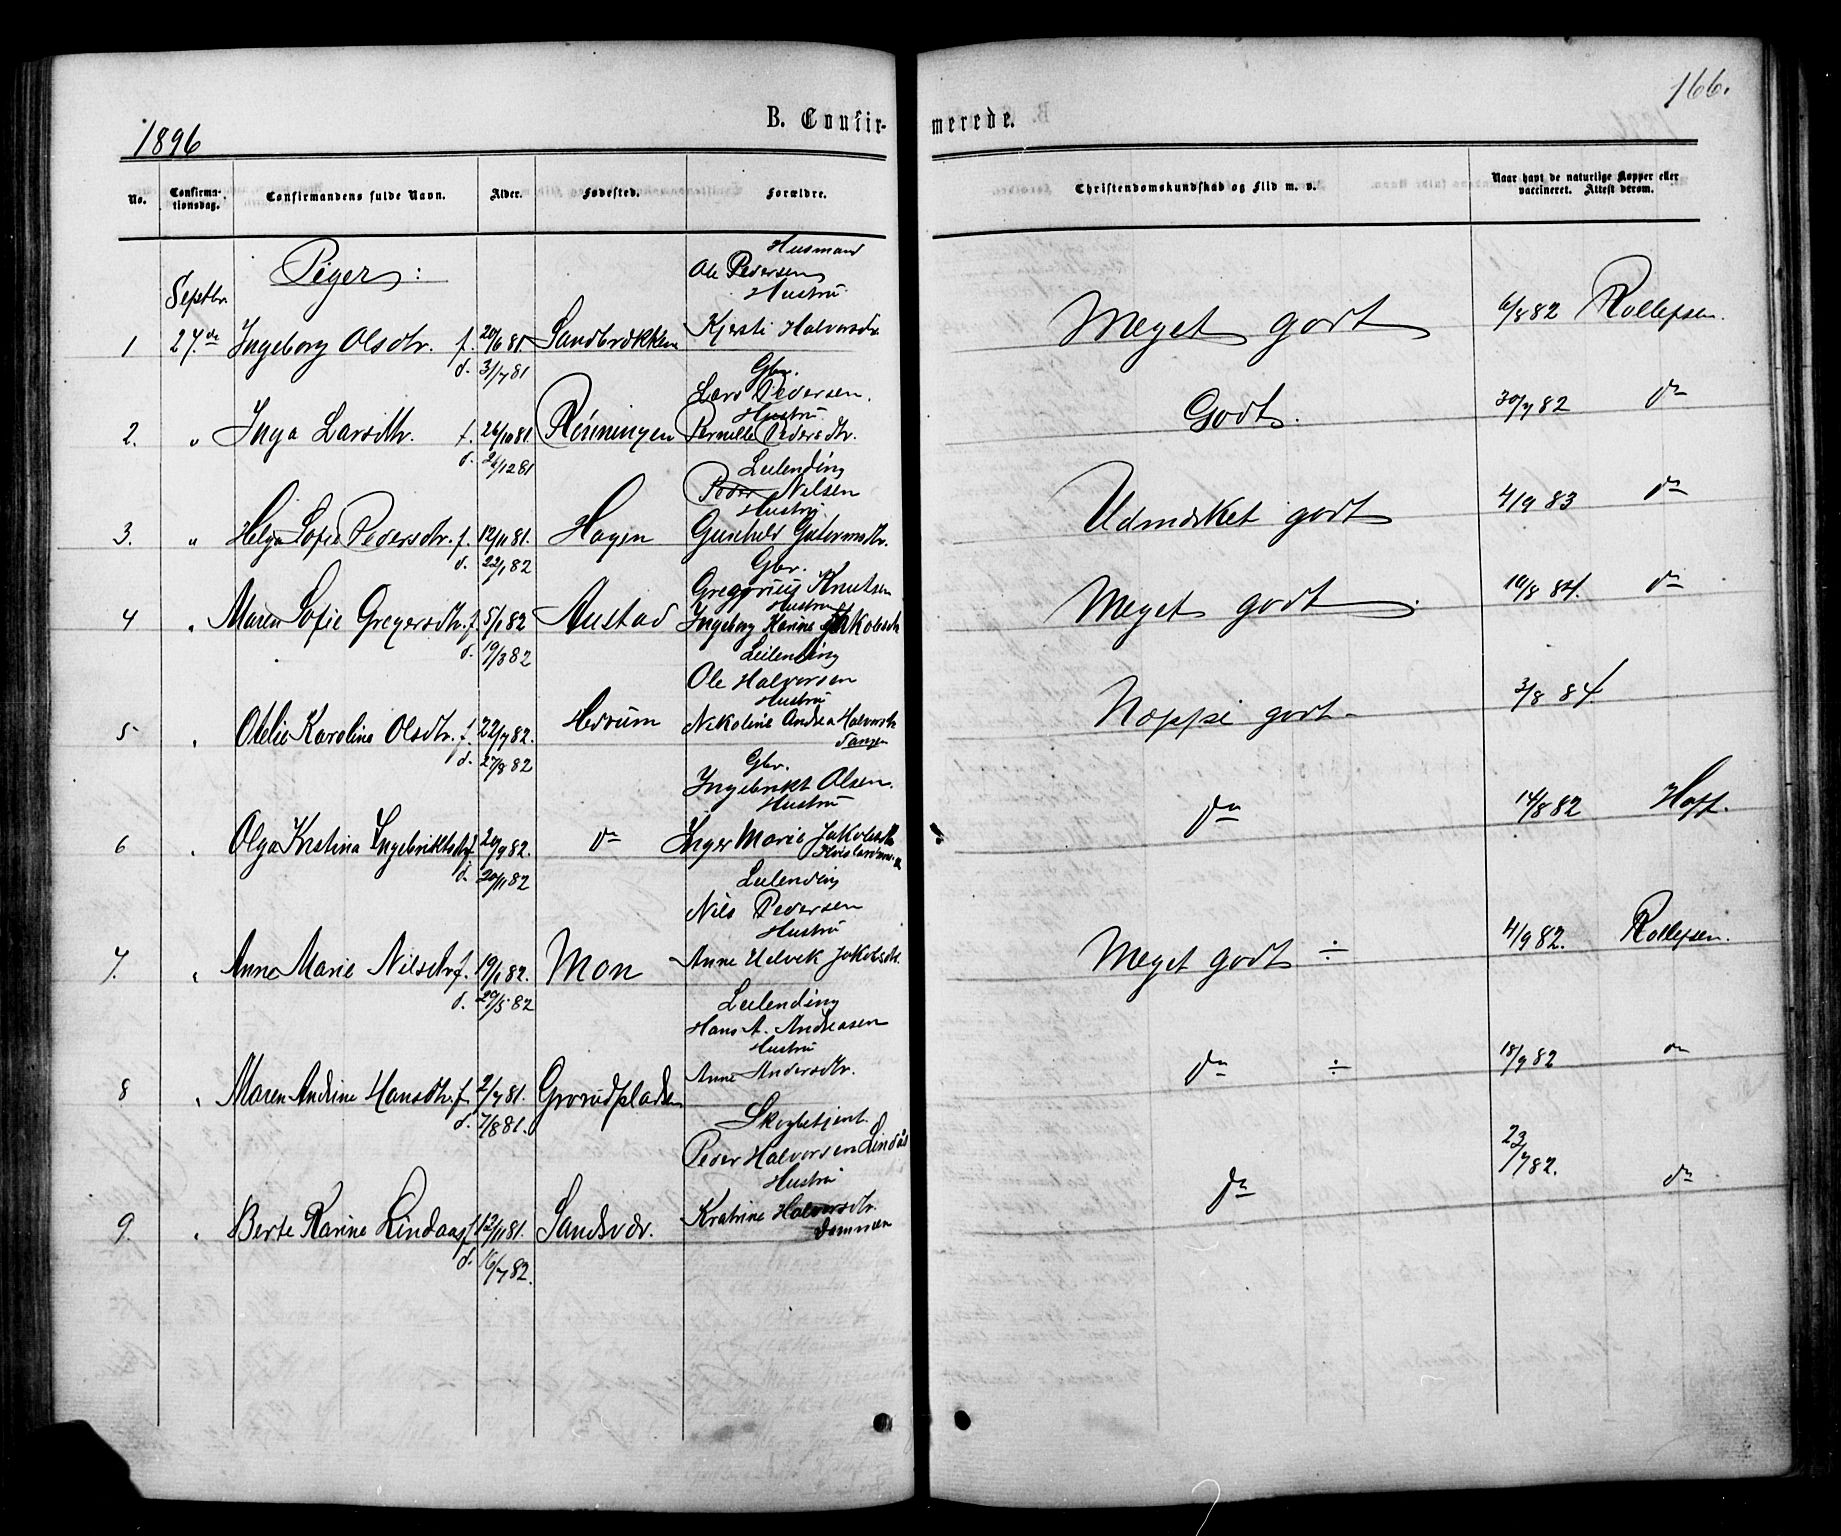 166.
1896
B. Confir-merede.
No. Confirma-tionsdag. Confirmandens fulde Navn. Alder. Fødested. Forældre. Christendomskundskab og Flid m. v. Naar havt de naturlige Kopper eller vaccineret. Attest derom.
Piger:
Septbr.
Husmand
Ole Pedersen
Hustru
1 27de Ingeborg Olsdtr. f. 20/6 81 Sandbrækken Kjersti Halvorsdtr Meget godt 6/8 82 Rollefsen.
d. 31/7 81
Gbr.
Lars Pedersen.
Hustru
2. " Inga Larsdtr. f. 26/10 81 Rønningen Pernille Pedersdtr. Godt. 30/7 82 do
d. 26/12 81
Leilending
Peder Nilsen
Hustru
3. " Helga Sofie Pedersdtr. f. 12/11 81. Hagen Gunhild Gutormsdtr. Udmærket godt 4/9 83 do
d. 22/1 82
Gbr.
Gregorius Knutsen
Hustru
4 " Maren Sofie Gregersdtr. f. 5/1 82 Austad Ingeborg Karine Jakobsdtr Meget godt. 10/8 84. do
d. 19/3 82
Leilending
Ole Halvorsen
Hustru
5 " Otelie Karoline Olsdtr. f. 22/7 82. Hedrum Nikoline Andrea Halvorsdtr Noppe godt 3/8 84.
Tangen
d. 27/8 82
Gbr.
Ingebrikt Olsen.
Hustru
6 " Olga Kristina Ingebriktsdtr f. 20/9 82. do Inger Marie Jakobsdtr do 14/8 82 Hoff.
d. 20/11 82
Leilending
Nils Pedersen
Hustru
7. " Anne Marie Nilsdtr f. 19/1 82. Mon Anne Ulvik Jakobsdtr. Meget godt ÷ 4/9 82. Rollefsen.
d. 29/5 82
Leilending
Hans A. Andreasen
Hustru
8 " Maren Andrine Hansdtr. f. 2/7 81. Grorudpladsen Anne Andersdtr. do ÷ 18/9 82 do
d. 7/8 81.
Skogbetjent.
Peder Halvorsen Lindås
Hustru
9. " Berte Karine Lindaas f. 12/11 81. Sandsvær. Kratrine Halvorsdtr. do 23/7 82. do
d. 16/7 82.